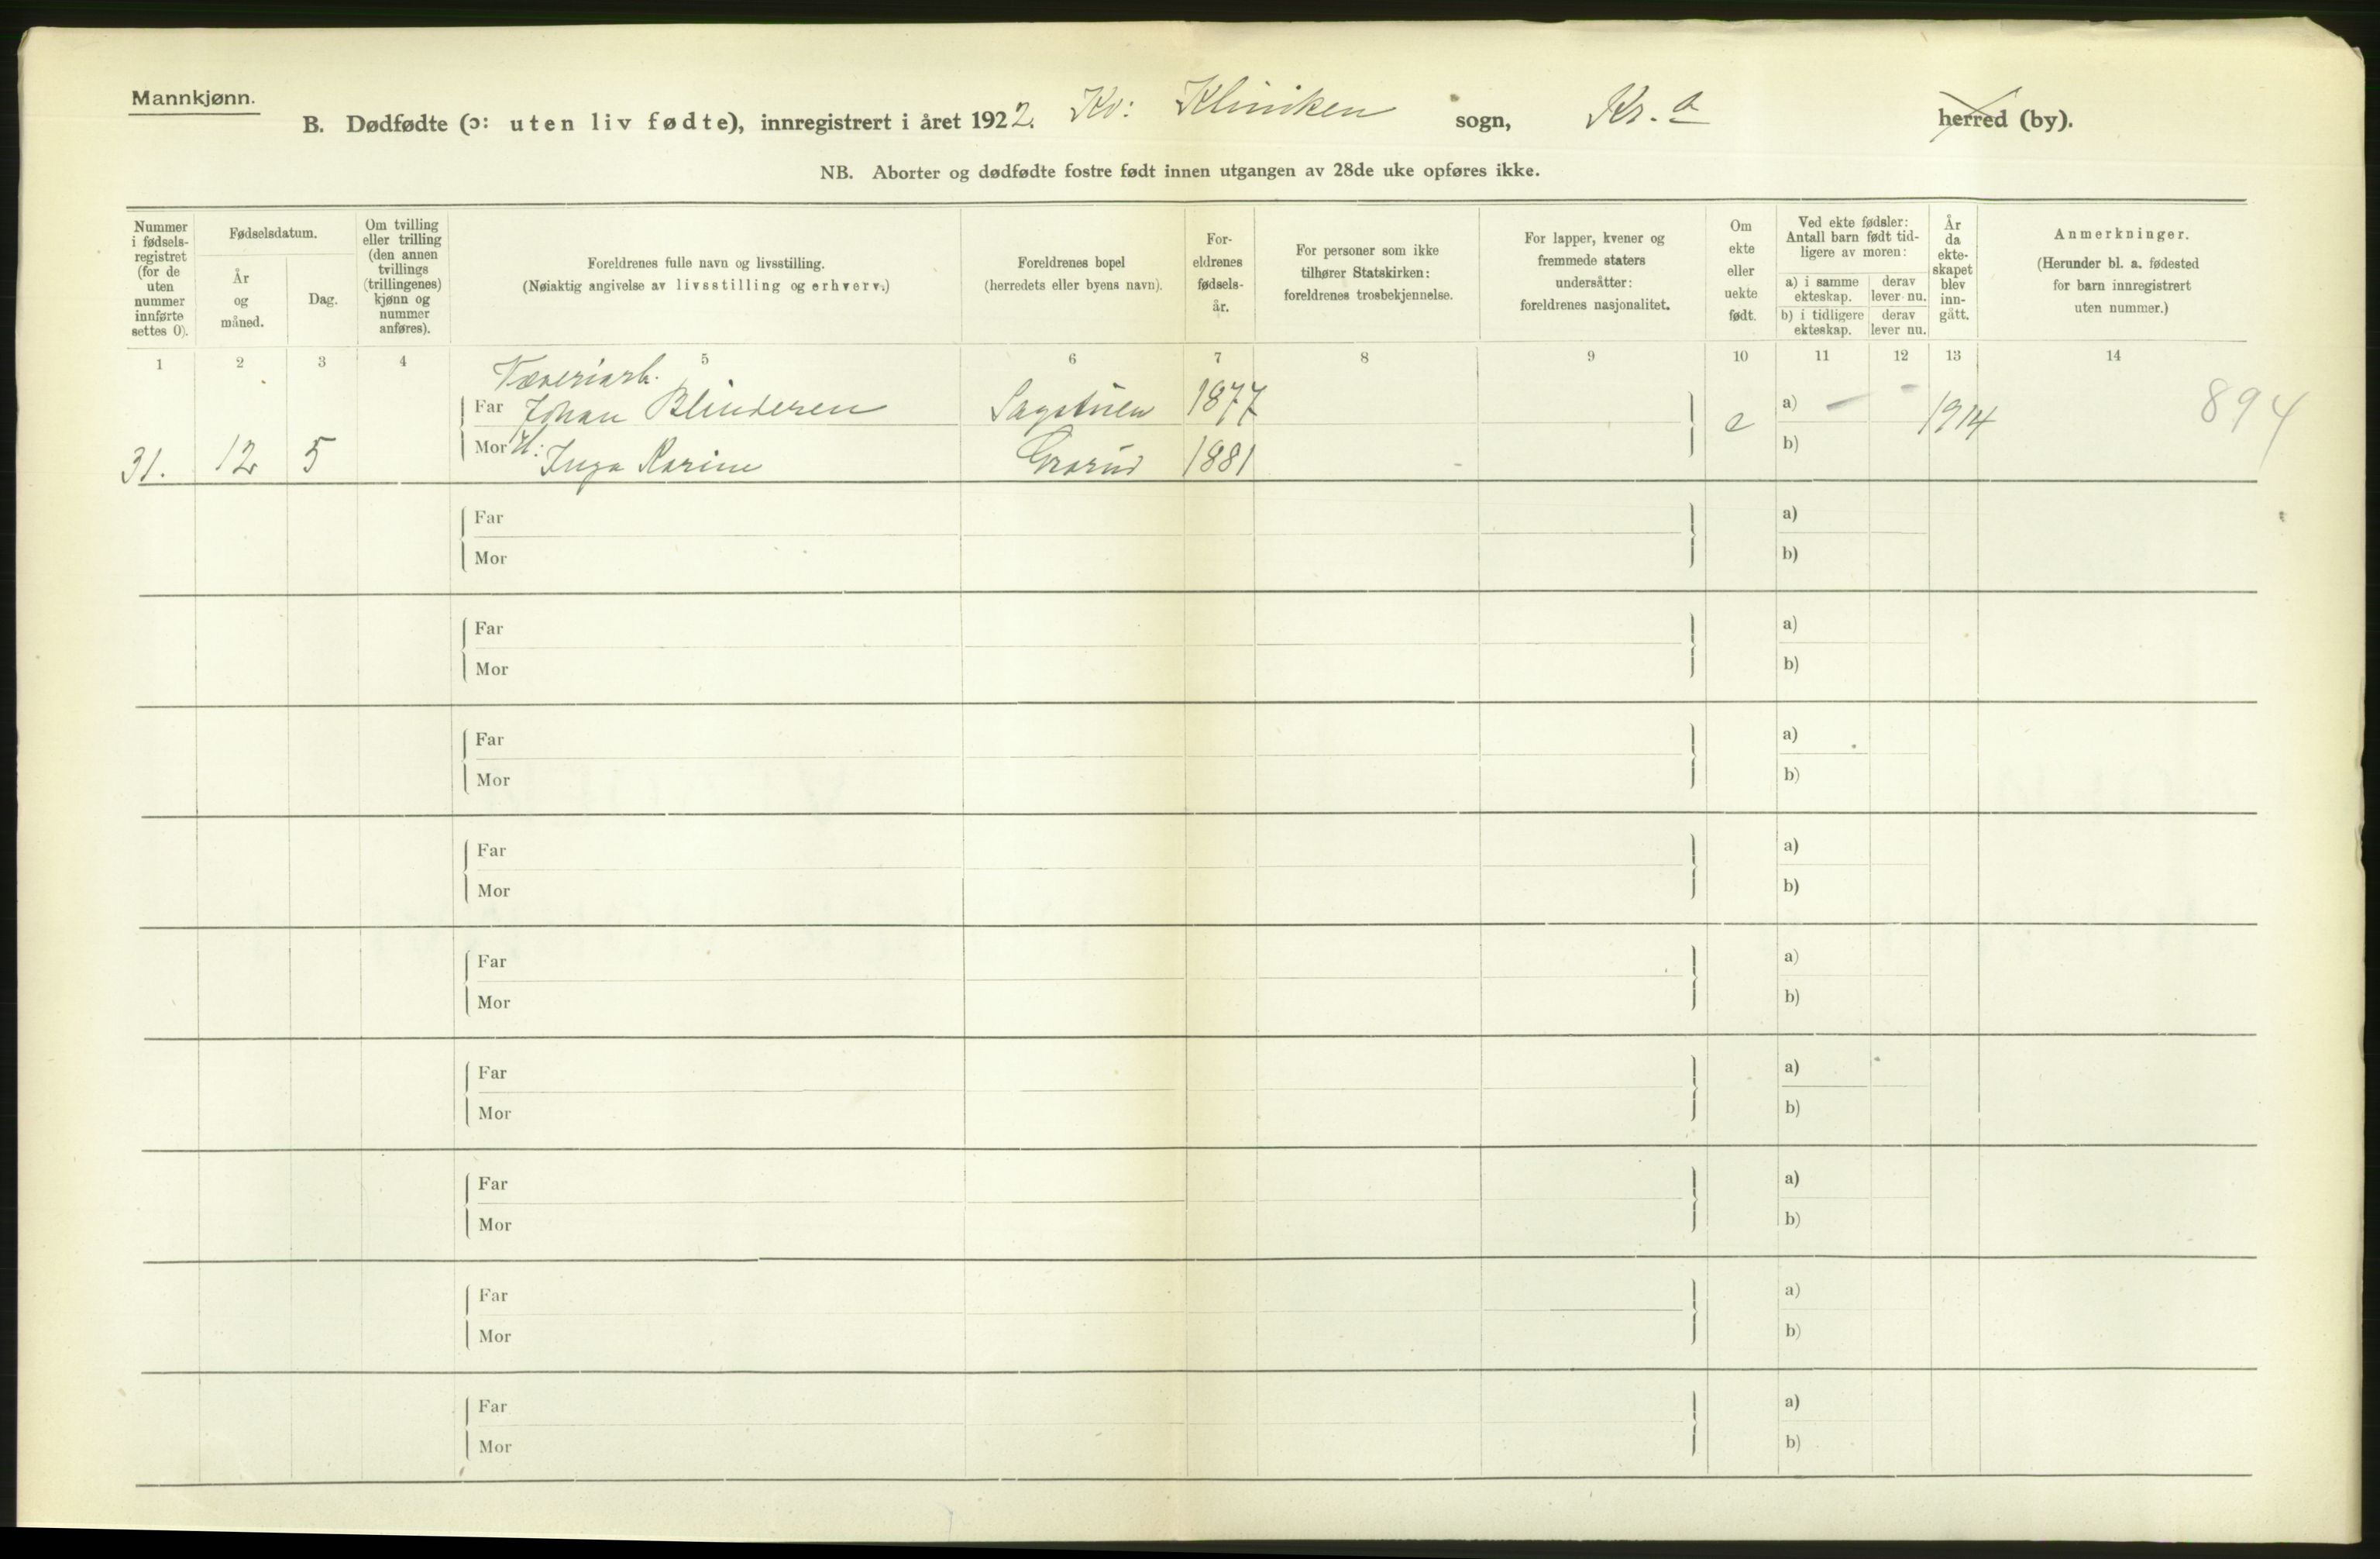 Mannkjønn.
B. Dødfødte (ɔ: uten liv fødte), innregistrert i året 1922. Kv: Kliniken sogn, Kr.a herred (by).
NB. Aborter og dødfødte fostre født innen utgangen av 28de uke opføres ikke.
Nummer i fødsels-registret (for de uten nummer innførte settes 0).
Fødselsdatum.
År og måned.
Dag.
Om tvilling eller trilling (den annen tvillings (trillingenes) kjønn og nummer anføres).
Foreldrenes fulle navn og livsstilling.
(Nøiaktig angivelse av livsstilling og erhverv.)
Foreldrenes bopel
(herredets eller byens navn).
For-eldrenes fødsels-år.
For personer som ikke tilhører Statskirken: foreldrenes trosbekjennelse.
For lapper, kvener og fremmede staters undersåtter: foreldrenes nasjonalitet.
Om ekte eller uekte født.
Ved ekte fødsler: Antall barn født tid-ligere av moren:
a) i samme ekteskap.
derav lever nu.
b) i tidligere ekteskap.
derav lever nu.
År da ekte-skapet blev inn-gått.
Anmerkninger.
(Herunder bl. a. fødested for barn innregistrert uten nummer.)
1 2 3 4 5 6 7 8 9 10 11 12 13 14
Væveriarb.
Far Johan Blinderen Sagstuen 1877 a) — -
31. 12 5 e 1914 894
Mor H: Inga Karine Grorud 1881 b)
Far a)
Mor b)
Far a)
Mor b)
Far a)
Mor b)
Far a)
Mor b)
Far a)
Mor b)
Far a)
Mor b)
Far a)
Mor b)
Far a)
Mor b)
Far a)
Mor b)